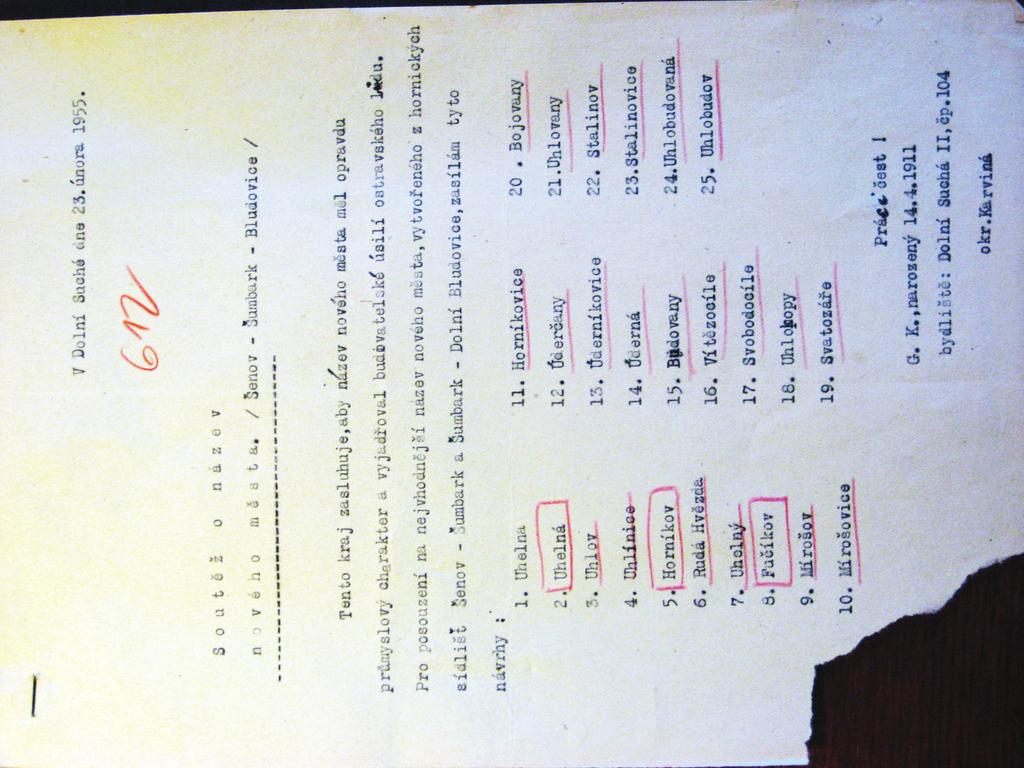 V Dolní Suché dne 23.února 1955.
612
S o u t ě ž   o   název
n o v é h o   m ě s t a. / Šenov - Šumbark - Bludovice /
Tento kraj zasluhuje,aby název nového města měl opravdu
průmyslový charakter a vyjadřoval budovatelské úsilí ostravského lidu.
Pro posouzení na nejvhodnější název nového města,vytvořeného z hornických
sídlišť Šenov - Šumbark a Šumbark - Dolní Bludovice,zasílám tyto
návrhy :
1. Uhelna
2. Uhelná
3. Uhlov
4. Uhlínice
5. Horníkov
6. Rudá Hvězda
7. Uhelný
8. Fučíkov
9. Mírošov
10. Mírošovice
11. Horníkovice
12. Úderčany
13. Úderníkovice
14. Úderná
15. Budovany
16. Vítězocíle
17. Svobodocíle
18. Uhlokopy
19. Svatozáře
20 . Bojovany
21.Uhlovany
22. Stalinov
23.Stalinovice
24.Uhlobudovaná
25. Uhlobudov
Práci čest !
G. K.,narozený 14.4.1911
bydliště: Dolní Suchá II,čp.104
okr.Karviná